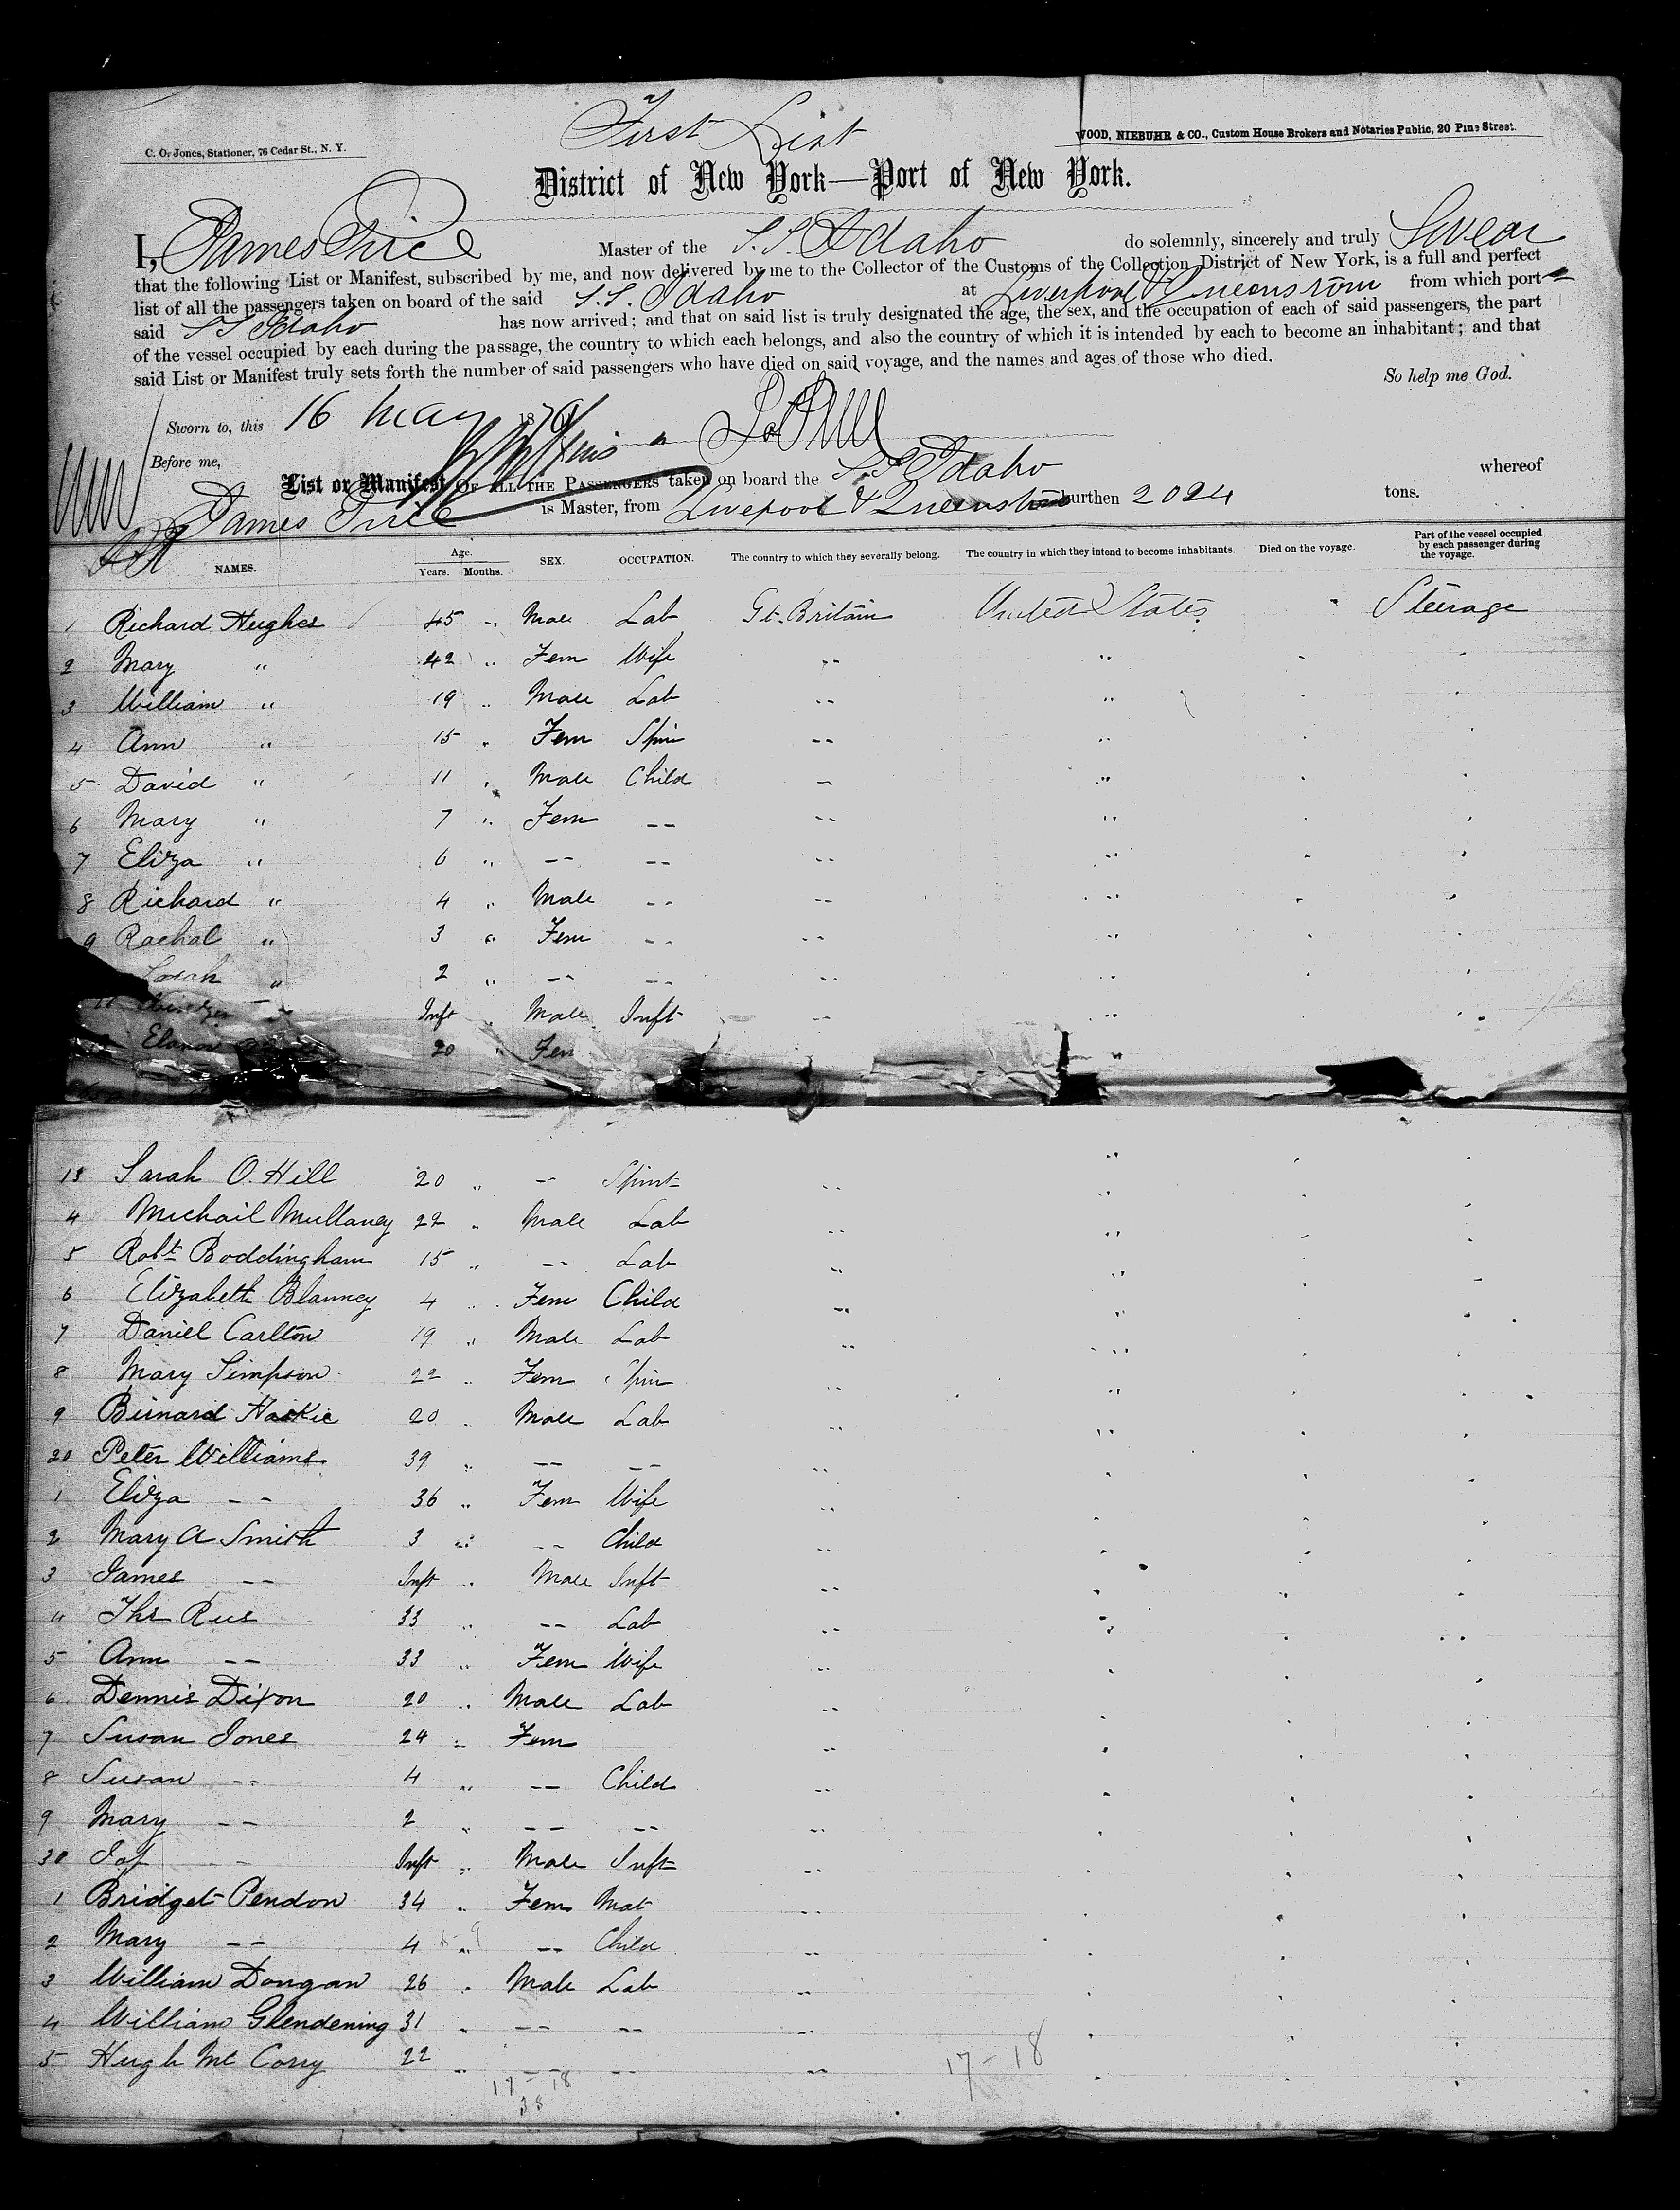 First List
C. O. Jones, Stationer, 76 Cedar St., N. Y.
WOOD, NIEBUHR & CO., Custom House Brokers and Notaries Public, 20 Pine Street.
District of New York—Port of New York.
I, James Price Master of the S.S. Idaho do solemnly, sincerely and truly Swear
that the following List or Manifest, subscribed by me, and now delivered by me to the Collector of the Customs of the Collection District of New York, is a full and perfect
list of all the passengers taken on board of the said S.S. Idaho at Liverpool & Queenstown from which port
said SS Idaho has now arrived; and that on said list is truly designated the age, the sex, and the occupation of each of said passengers, the part
of the vessel occupied by each during the passage, the country to which each belongs, and also the country of which it is intended by each to become an inhabitant; and that
said List or Manifest truly sets forth the number of said passengers who have died on said voyage, and the names and ages of those who died.
So help me God.
Sworn to, this 16 May 187
Before me,
List or Manifest OF ALL THE PASSENGERS taken on board the S.S. Idaho whereof
James Price is Master, from Liverpool & Queenstown burthen 2024 tons.
NAMES. Age. Years. Months. SEX. OCCUPATION. The country to which they severally belong. The country in which they intend to become inhabitants. Died on the voyage. Part of the vessel occupied by each passenger during the voyage.
1 Richard Hughes 45 " Male Lab Gt. Britain United States - Steerage
2 Mary " 42 " Fem Wife -- "
3 William " 19 " Male Lab -- "
4 Ann " 15 " Fem Spin -- "
5 David " 11 " Male Child -- "
6 Mary " 7 " Fem -- -- "
7 Eliza " 6 " -- -- -- "
8 Richard " 4 " Male -- -- "
9 Rachal " 3 " Fem -- -- "
Sarah " 2 " -- -- -- "
11 Inft Male Inft -- "
Elanor 20 " Fem
13 Sarah O. Hill 20 " -- Spinst -- "
4 Michail Mullaney 22 " Male Lab -- "
5 Robt Boddingham 15 " -- Lab -- "
6 Elizabeth Blanney 4 " Fem Child -- "
7 Daniel Carlton 19 " Male Lab -- "
8 Mary Simpson 22 " Fem Spin -- "
9 Birnard Haskie 20 " Male Lab -- "
20 Peter Williams 39 " -- -- -- "
1 Eliza -- 36 " Fem Wife -- "
2 Mary A Smith 3 " -- Child -- "
3 James -- Inft " Male Inft -- "
4 Ths Rees 33 " -- Lab -- "
5 Ann -- 33 " Fem Wife -- "
6 Dennis Dixon 20 " Male Lab -- "
7 Susan Jones 24 " Fem -- "
8 Susan -- 4 " -- Child -- "
9 Mary -- 2 " -- -- -- "
30 Jos -- Inft " Male Inft -- "
1 Bridget Pendon 34 " Fem Mat -- "
2 Mary -- 4 " -- Child -- "
3 William Dougan 26 " Male Lab -- "
4 William Glendening 31 " -- -- -- "
5 Hugh Mc Corry 22 " -- -- -- "
17-18
17-18
38